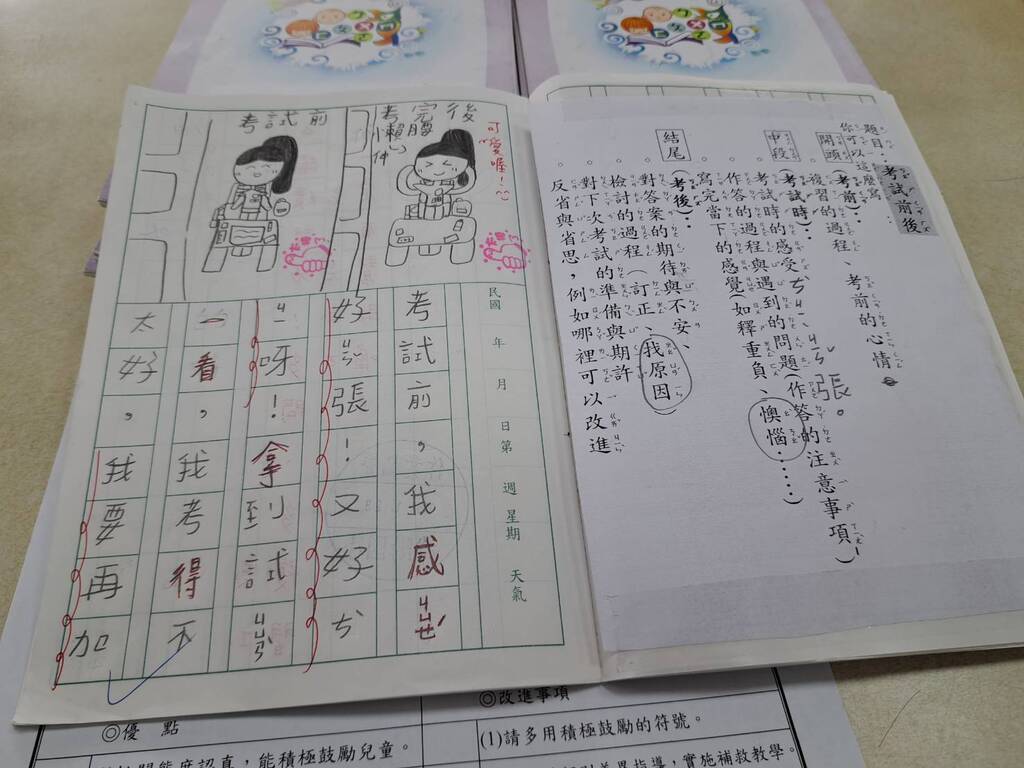 題目：考試前後
你可以這麼寫
開頭 (考前)：
複習的過程、考前的心情
中段 (考試時)：
考試時的感受 張。
作答的過程與遇到的問題(作答的注意事項！)
寫完當下的感覺(如釋重負、懊惱……)
結尾 (考後)：
對答案的期待與不安、
檢討的過程(訂正、找原因)
對下次考試的準備與期許
反省與省思，例如哪裡可以改進
考試前
考完後
伸懶腰
可愛喔！
民國 年 月 日 第 週 星期 天氣
考試前，我感ㄐㄩㄝˊ
好ㄐㄧㄣˇ張！又好ㄘ
ㄐㄧ呀！拿到試ㄐㄩㄢˋ
一看，我考得不
太好，我要再加
◎優 點
態度認真，能積極鼓勵兒童。
◎改進事項
(1)請多用積極鼓勵的符號。
指導，實施補救教學。